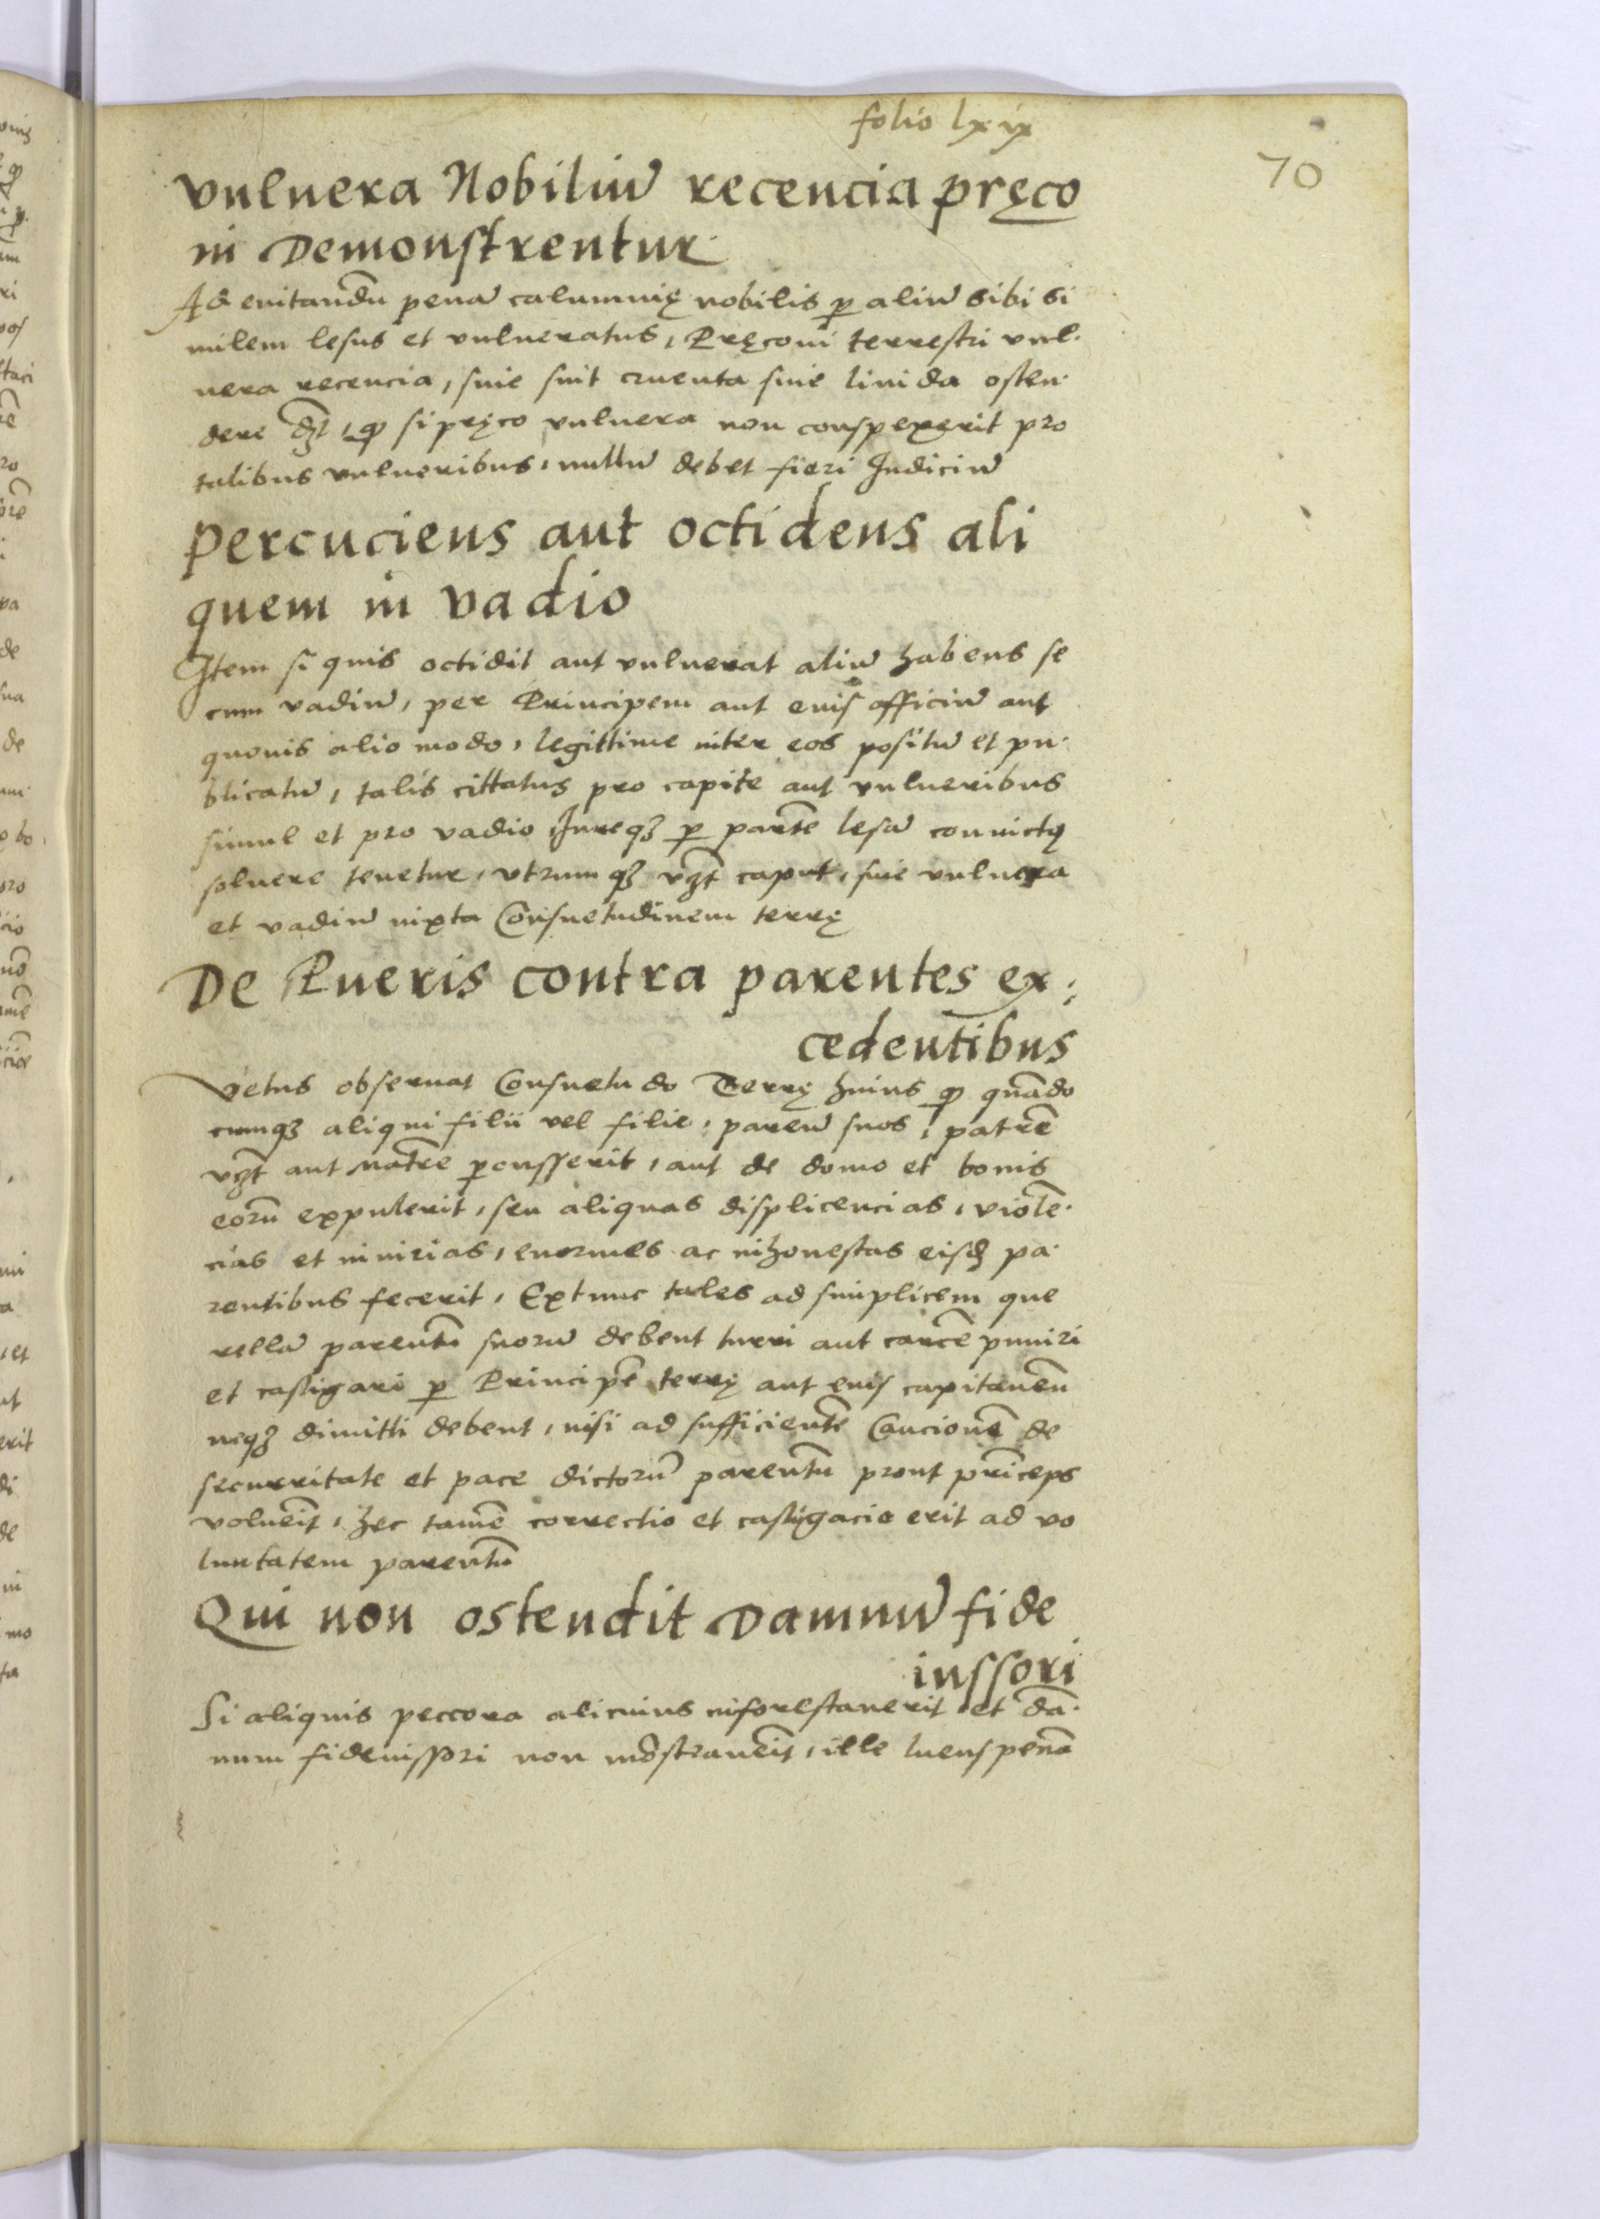 folio lxix
70
vulnera Nobiliũ recencia pręco
ni Demonstrentur
Ad euitandũ penã calumnię nobilis ꝑ aliũ sibi si
milem lesus et vulneratus, Pręconi terrestri vul
nera recencia, siue sint cruenta siue liuida osten
dere si pręco vulnera non conspexerit pro
talibus vulneribus, nullũ debet fieri Iudiciũ
Percuciens aut octidens ali
quem in vadio
Item si quis octidit aut vulnerat aliũ habens se
cum vadiũ, per Principem aut eius officiũ aut
quouis alio modo, legittime inter eos positũ et pu
blicatũ, talis cittatus pro capite aut vulneribus
simul et pro vadio Iureqꝫ ꝑ partẽ lesã conuictꝰ
soluere tenetur, vtrumqꝫ vꝫt caput, siue vulnera
et vadiũ iuxta Consuetudinem terrę
De Pueris contra parentes ex:
cedentibus
Vetus obseruat Consuetudo Terrę huius ꝙ quãdo
cumqꝫ aliqui filii vel filie, paren̄ suos, patrẽ
vꝫt aut matrẽ ꝑcusserit, aut de domo et bonis
eorũ expulerit, seu aliquas displicencias, violẽ
cias et iniurias, enormes ac inhonestas eisdꝫ pa
rentibus fecerit, Extunc tales ad simplicem que
rellã parentũ suorũ debent turri aut carcẽ puniri
et castigari ꝑ Principẽ terrę aut eius capitaneũ
neqꝫ dimitti debent, nisi ad sufficientẽ Caucionẽ de
securitate et pace dictorũ parentũ prout prĩceps
voluẽit, hec tamẽ correctio et castigacio erit ad vo
luntatem parentũ
Qui non ostendit Damnũ fide
iussori
Si aliquis peccora alicuius inforestauerit et dã
num fideiussori non mõstrauẽit, ille luens penã